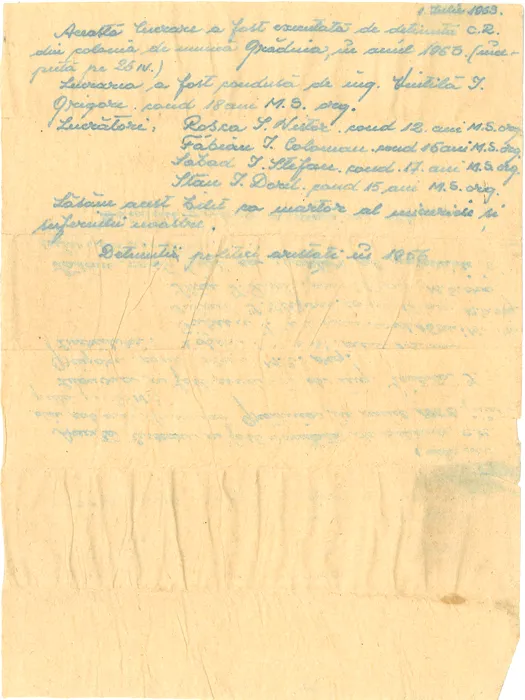 1 Iulie 1963.
Această lucrare a fost executată de deținuți C.R.
din colonia de muncă Grădina, în anul 1963. (înce-
pută pe 25 IV.)
Lucrarea a fost condusă de ing. Vintilă I.
Grigore. cond 18 ani M.S. org.
Lucrători: Roșca S. Nistor. cond 12. ani M.S. org.
Fábian I. Coloman. cond 16 ani M.S. org.
Sabad I. Ștefan. cond. 17. ani M.S. org.
Stan I. Dorel. cond 15 ani M.S. org.
Lăsăm acest bilet ca martor al muncii și
suferinții noastre.
Deținuții politici arestați în